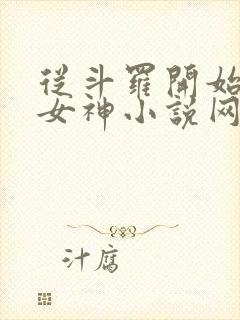 從斗羅開始
女神小說网
汁腐